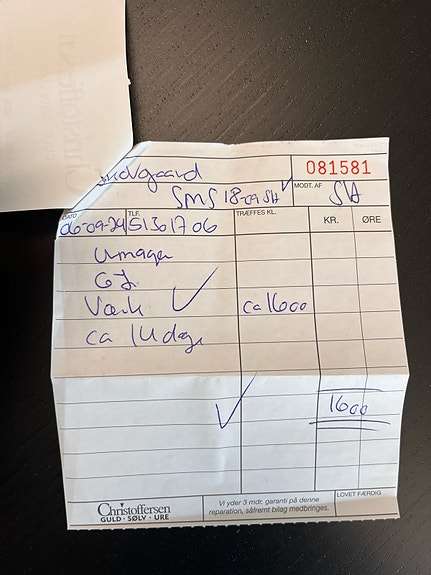 081581
SMS 18-09 SH
MODT. AF
SH
DATO
TLF.
TRÆFFES KL.
KR.
ØRE
06-09-24
51301706
Umager
GJ.
Værk
ca 1600
ca 14 dage
1600
LOVET FÆRDIG
Christoffersen
GULD · SØLV · URE
Vi yder 3 mdr. garanti på denne
reparation, såfremt bilag medbringes.